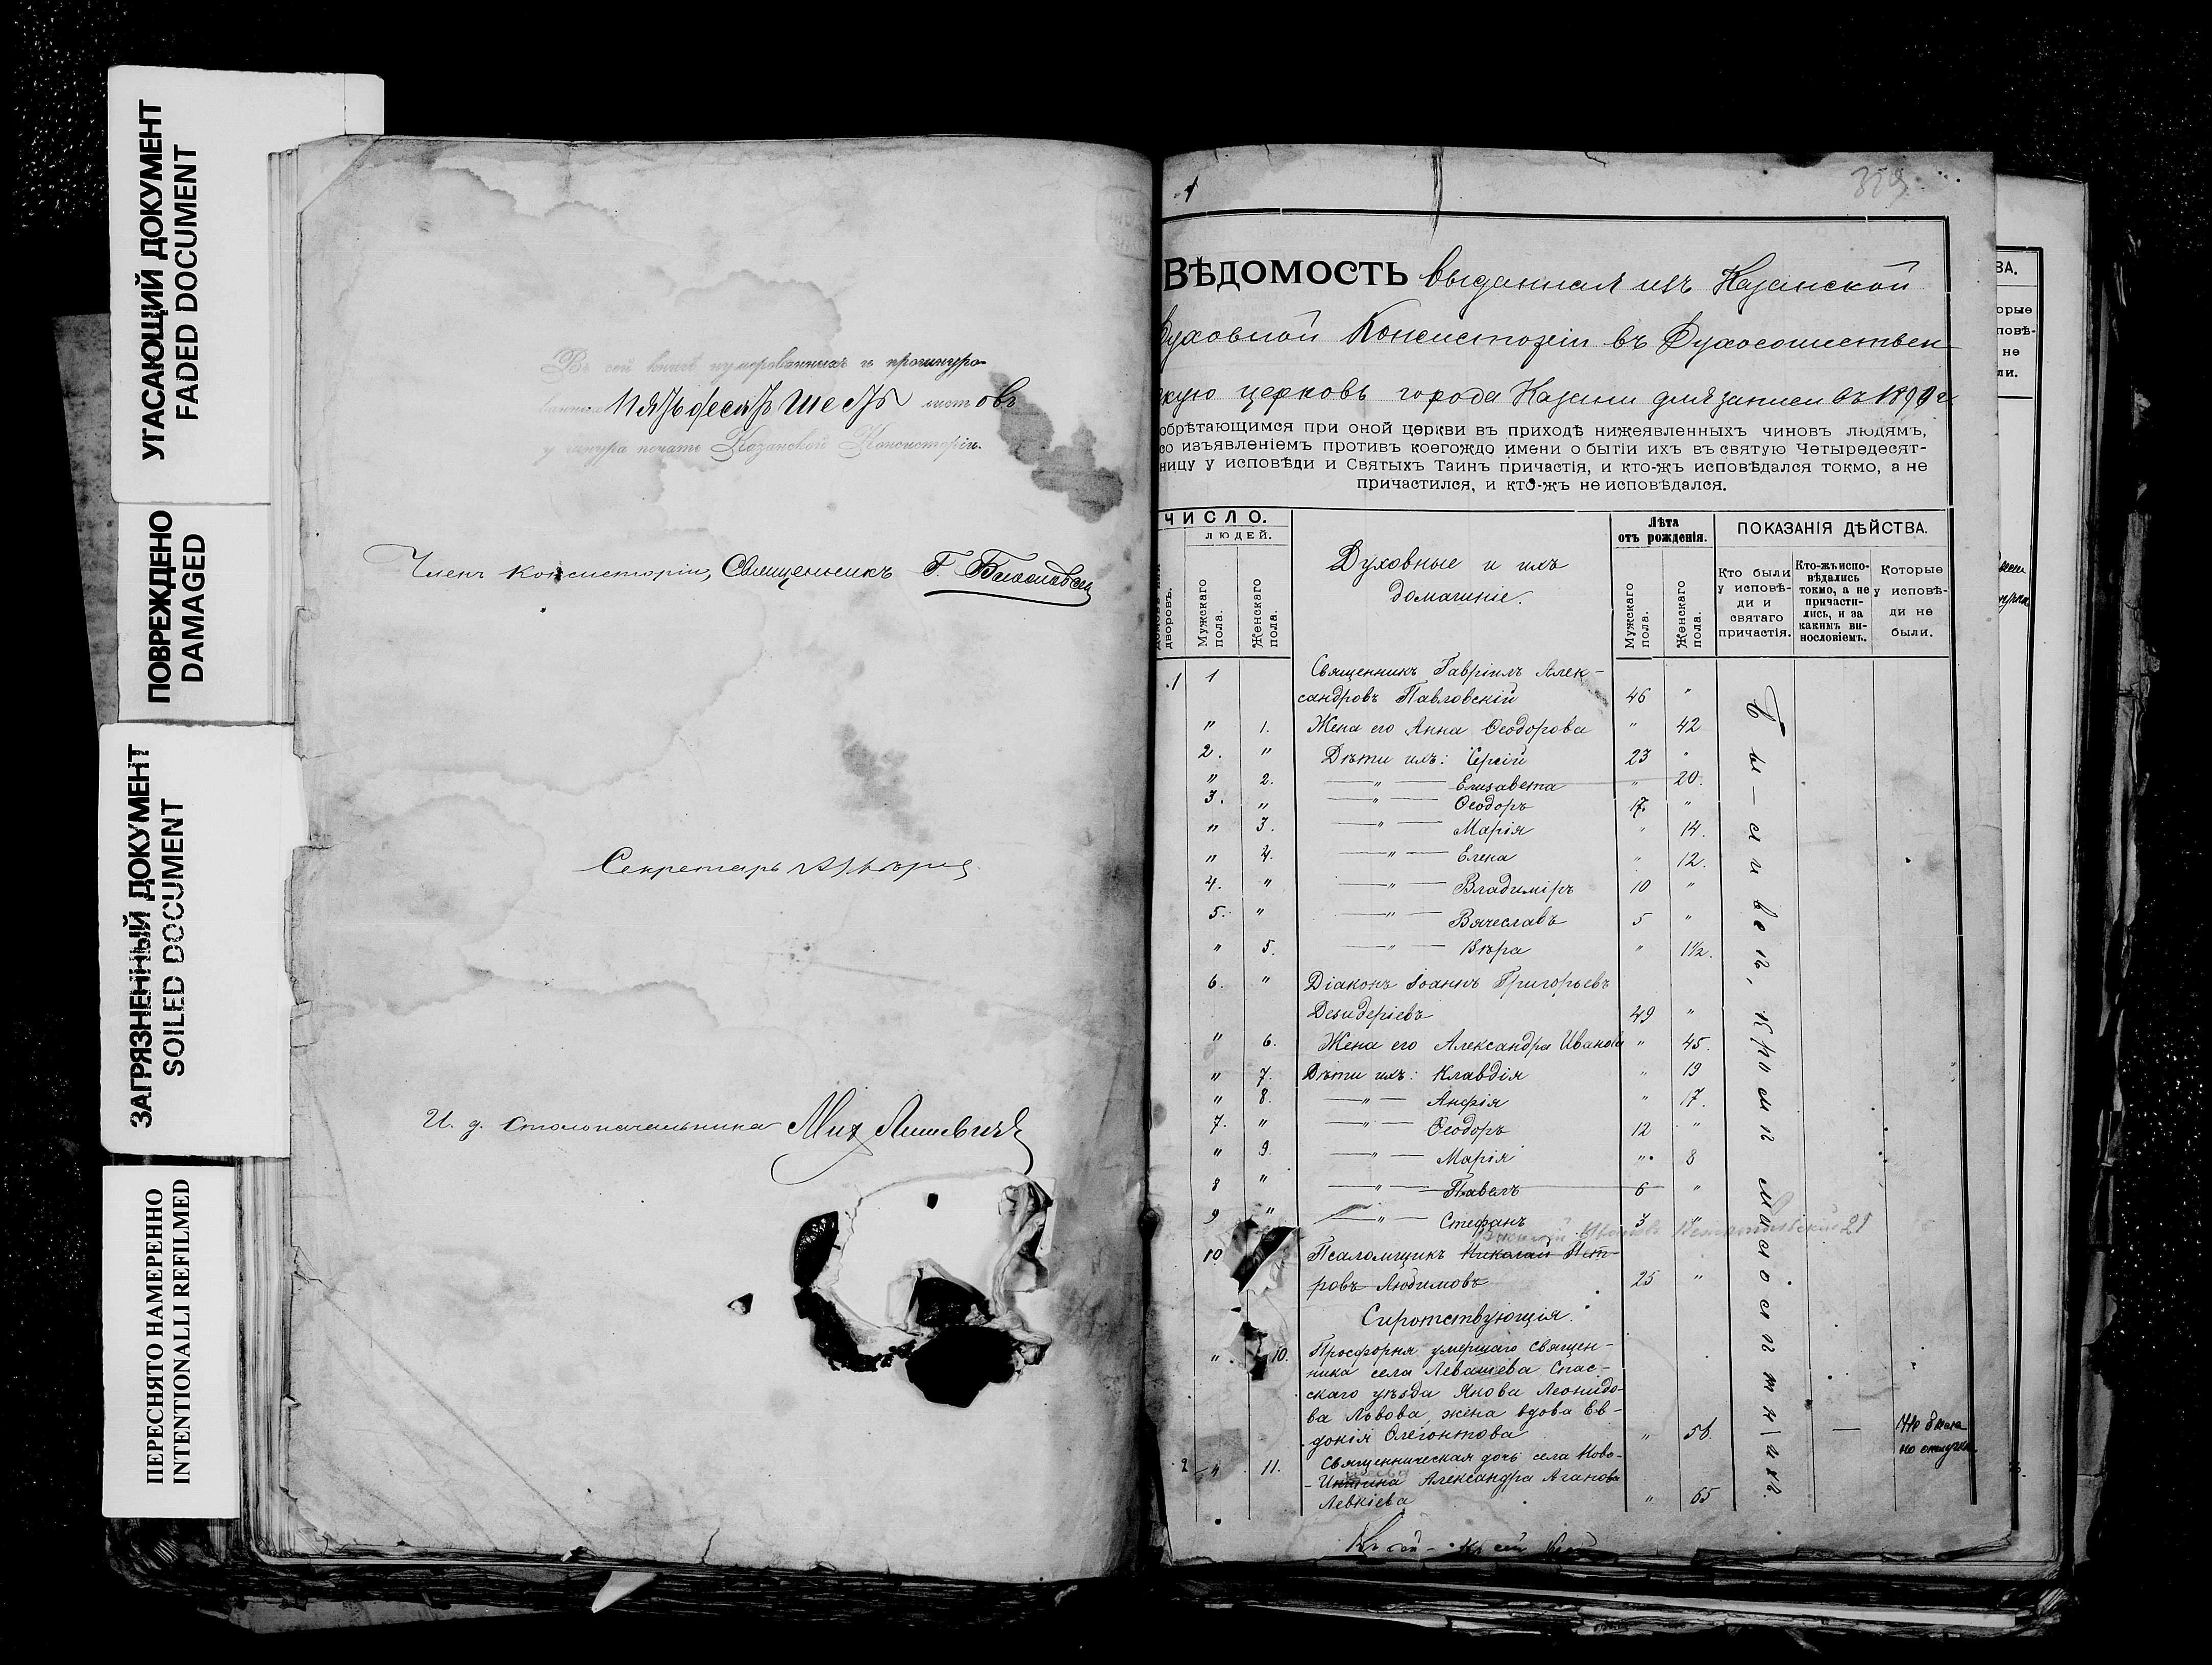 УГАСАЮЩИЙ ДОКУМЕНТ
FADED DOCUMENT
ПОВРЕЖДЕНО
DAMAGED
ЗАГРЯЗНЕННЫЙ ДОКУМЕНТ
SOILED DOCUMENT
ПЕРЕСНЯТО НАМЕРЕННО
INTENTIONALLI REFILMED
Въ сей книге нумерованныхъ и прошнуро-
ванныхъ пятьдесятъ шесть листовъ
у шнура печать Казанской Консисторіи.
Членъ Консисторіи, Священникъ Г.
Секретарь
И. д. Столоначальника Мих
1
ВѢДОМОСТЬ выданная изъ Казанской
Духовной Консисторіи въ Духосошествен-
скую церковь города Казани для записи въ 1890 г.
обрѣтающимся при оной церкви въ приходѣ нижеявленныхъ чиновъ людямъ,
со изъявленіемъ противъ коегождо имени о бытіи ихъ въ святую Четыредесят-
ницу у исповѣди и Святыхъ Таинъ причастія, и кто-жъ исповѣдался токмо, а не
причастился, и кто-жъ не исповѣдался.
ЧИСЛО.
ЛЮДЕЙ.
дворовъ.
Мужскаго пола.
Женскаго пола.
Духовные и ихъ
домашніе.
Лѣта
отъ рожденія.
Мужскаго пола.
Женскаго пола.
ПОКАЗАНІЯ ДѢЙСТВА.
Кто были у исповѣди и святаго причастія.
Кто-жъ исповѣдались токмо, а не причастились, и за какимъ винословіемъ.
Которые у исповѣди не были.
1 1 Священникъ Гавріилъ Алек-
сандровъ Павловскій 46 "
" 1. Жена его Анна Ѳеодорова " 42
2. " Дѣти ихъ: Сергій 23 "
" 2. — " — Елизавета " 20.
3. " — " — Ѳеодоръ 17. "
" 3. — " — Марія " 14.
" 4. — " — Елена " 12.
4. " — " — Владиміръ 10 "
5. " — " — Вячеславъ 5 "
" 5. — " — Вѣра " 1½.
6. " Діаконъ Іоаннъ Григорьевъ
Дезидеріевъ 49 "
" 6. Жена его Александра Иванова " 45.
" 7. Дѣти ихъ: Клавдія " 19
" 8. — " — Анфія " 17.
7. " — " — Ѳеодоръ 12 "
" 9. — " — Марія " 8
8 " — " — Павелъ 6 "
9 " — " — Стефанъ 3 "
21
10 Псаломщикъ Николай Пет-
ровъ Любимовъ 25 "
Сиротствующія.
" 10. Просфорня умершаго священ-
ника села Левашева Спас-
скаго уѣзда Якова Леонидо-
ва Львова, жена вдова Ев-
докія Олегонтова " 56. — Не была
по отлучке.
2 " 11. Священническая дочь села Ново-
Александра Аганова
Левкіева " 65
Бы—ли всѣ, кромѣ малолѣтнихъ.